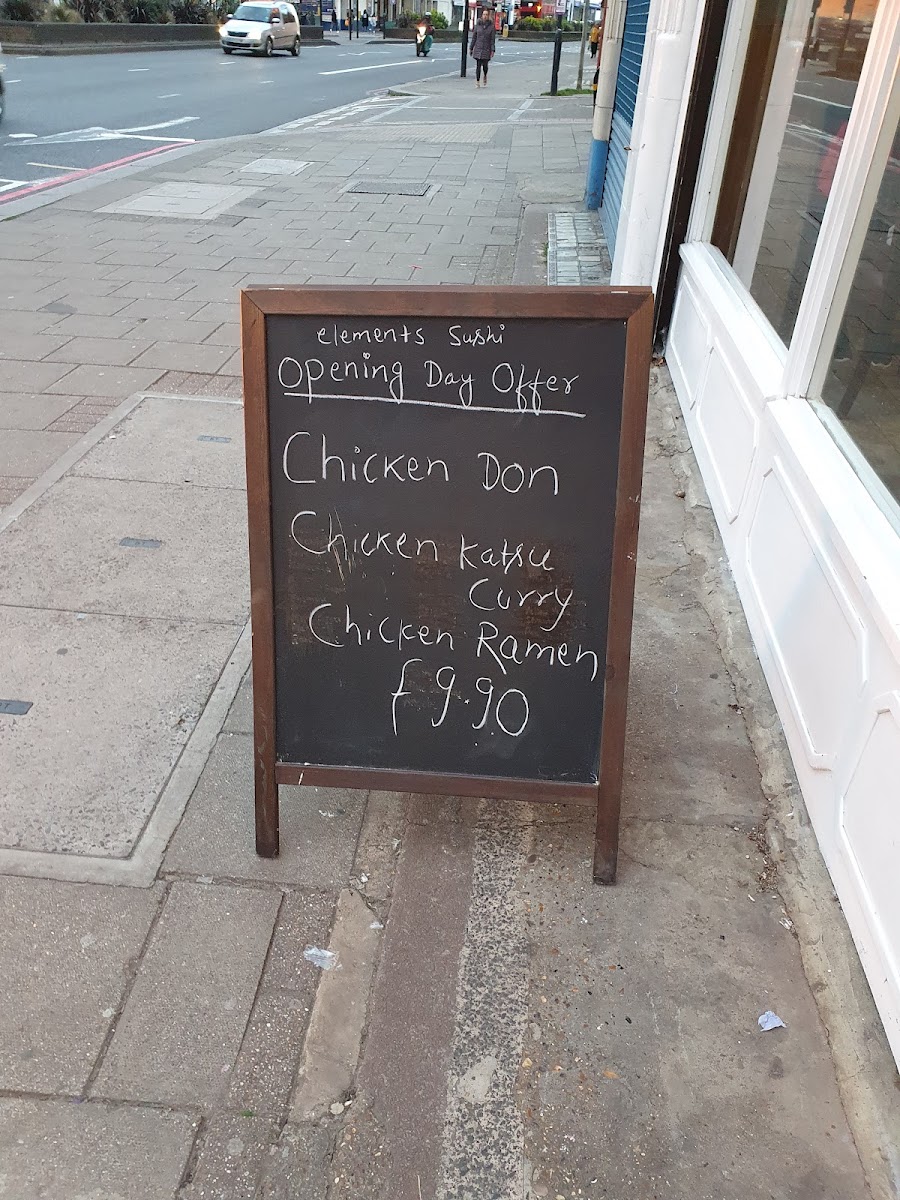 elements Sushi
Opening Day Offer
Chicken Don
Chicken Katsu
Curry
Chicken Ramen
£9.90